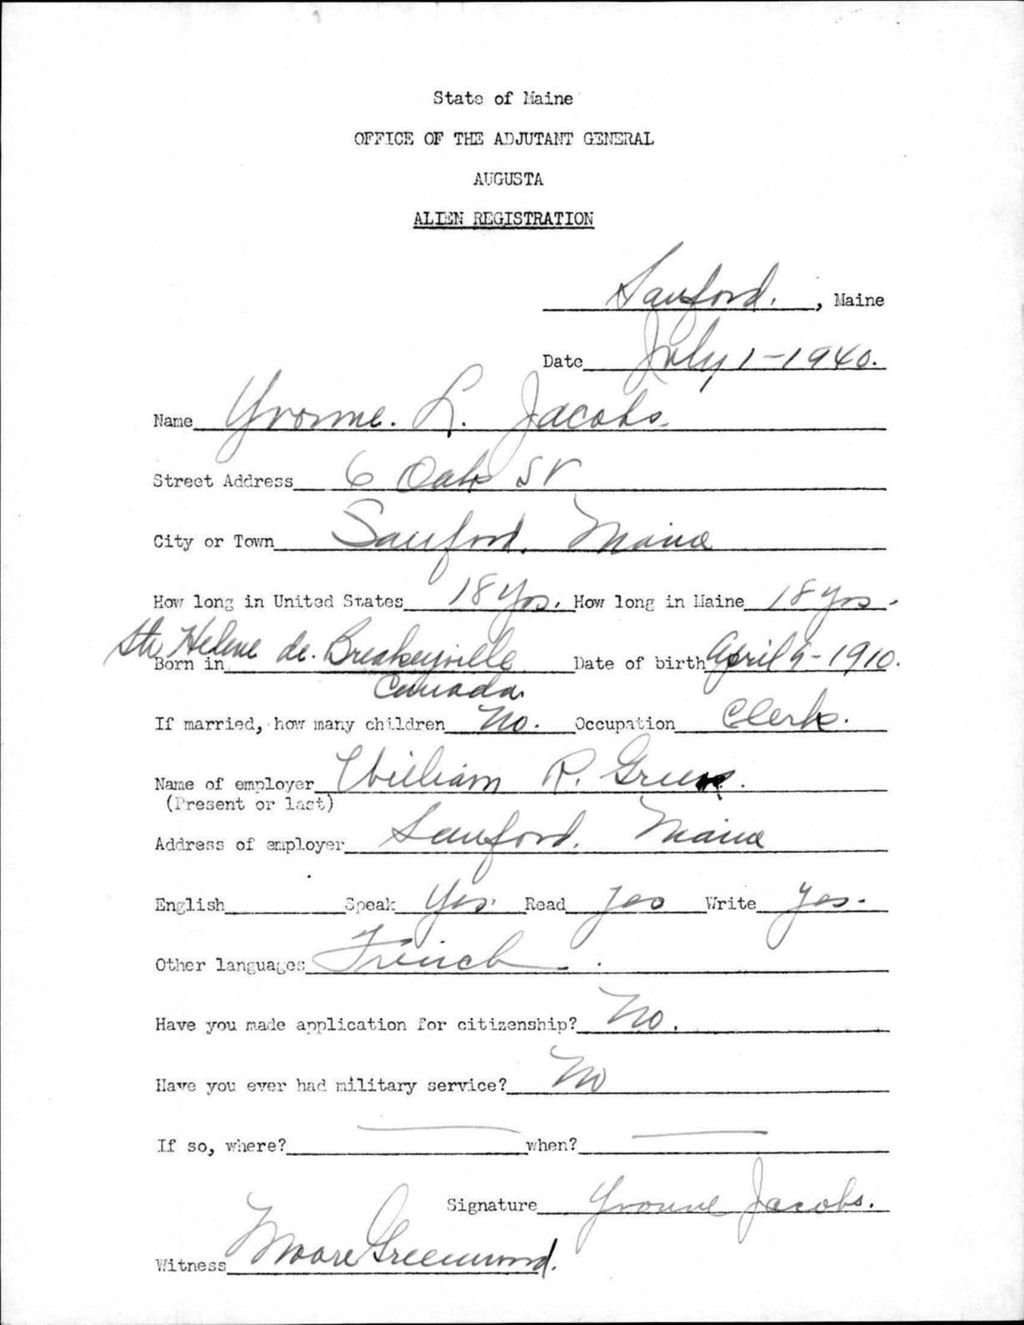 State of Maine
OFFICE OF THE ADJUTANT GENERAL
AUGUSTA
ALIEN REGISTRATION
Sanford. , Maine
Date July 1-1940.
Name Yvonne. L. Jacobs.
Street Address 6 Oak St
City or Town Sanford, Maine
How long in United States 18 Yrs. How long in Maine 18 yrs.
Born in Ste Helene de. Breakeyville Canada. Date of birth April 9-1910.
If married, how many children No. Occupation Clerk.
Name of employer William R.
(Present or last)
Address of employer Sanford, Maine
English Speak Yes. Read Yes Write Yes.
Other languages French
Have you made application for citizenship? No.
Have you ever had military service? No
If so, where? when?
Signature Yvonne Jacobs.
Witness Moore Greenwood.